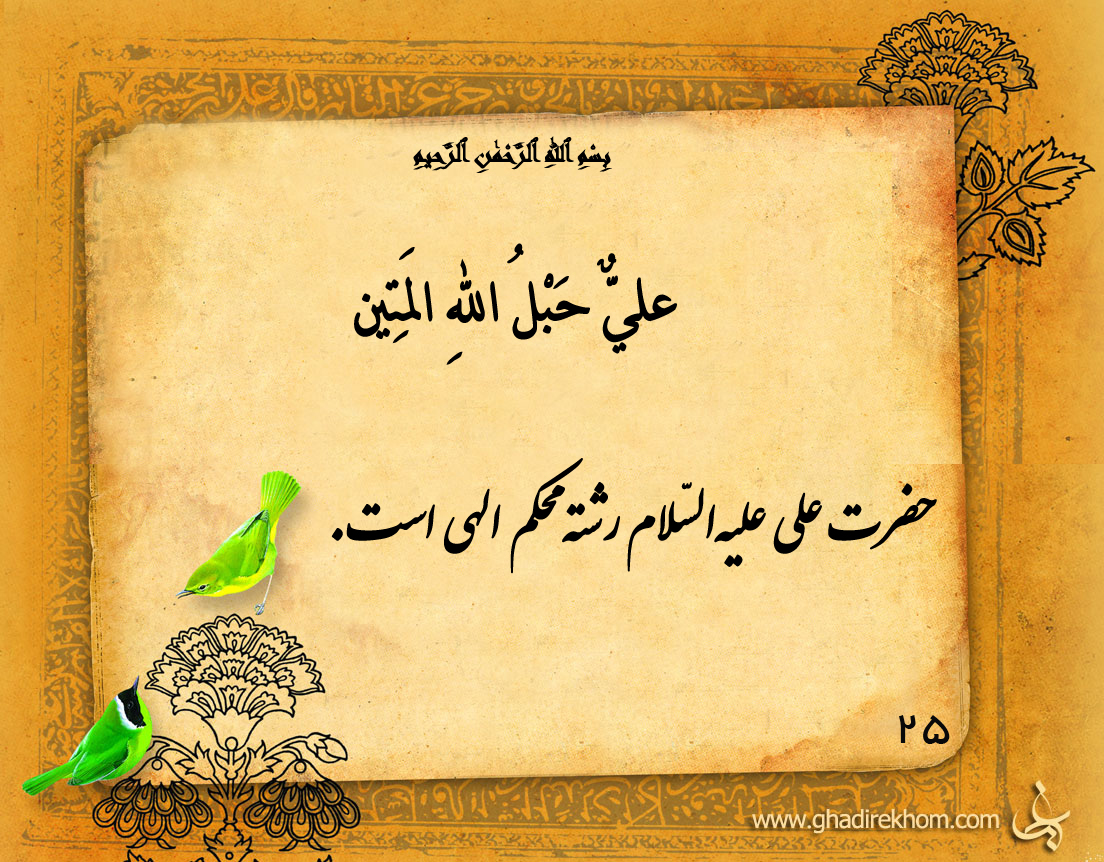 بِسْمِ اللهِ الرَّحْمٰنِ الرَّحِيمِ
عليٌّ حَبْلُ اللهِ المَتِين
حضرت علی علیه‌السّلام رشته محکم الهی است.
۲۵
www.ghadirekhom.com